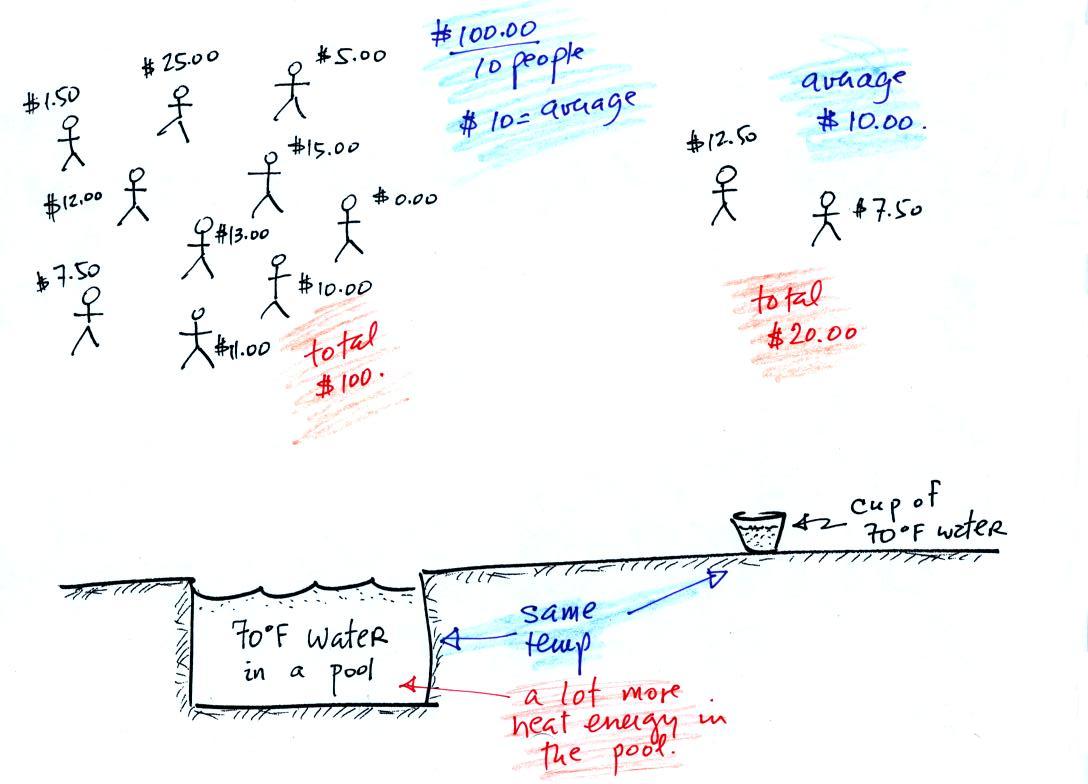 $1.50
$25.00
$5.00
$12.00
$15.00
$0.00
$13.00
$7.50
$10.00
$11.00
total
$100.
$100.00
10 people
$10 = average
$12.50
average
$10.00.
$7.50
total
$20.00
cup of
70°F water
70°F water
in a pool
same
temp
a lot more
heat energy in
the pool.